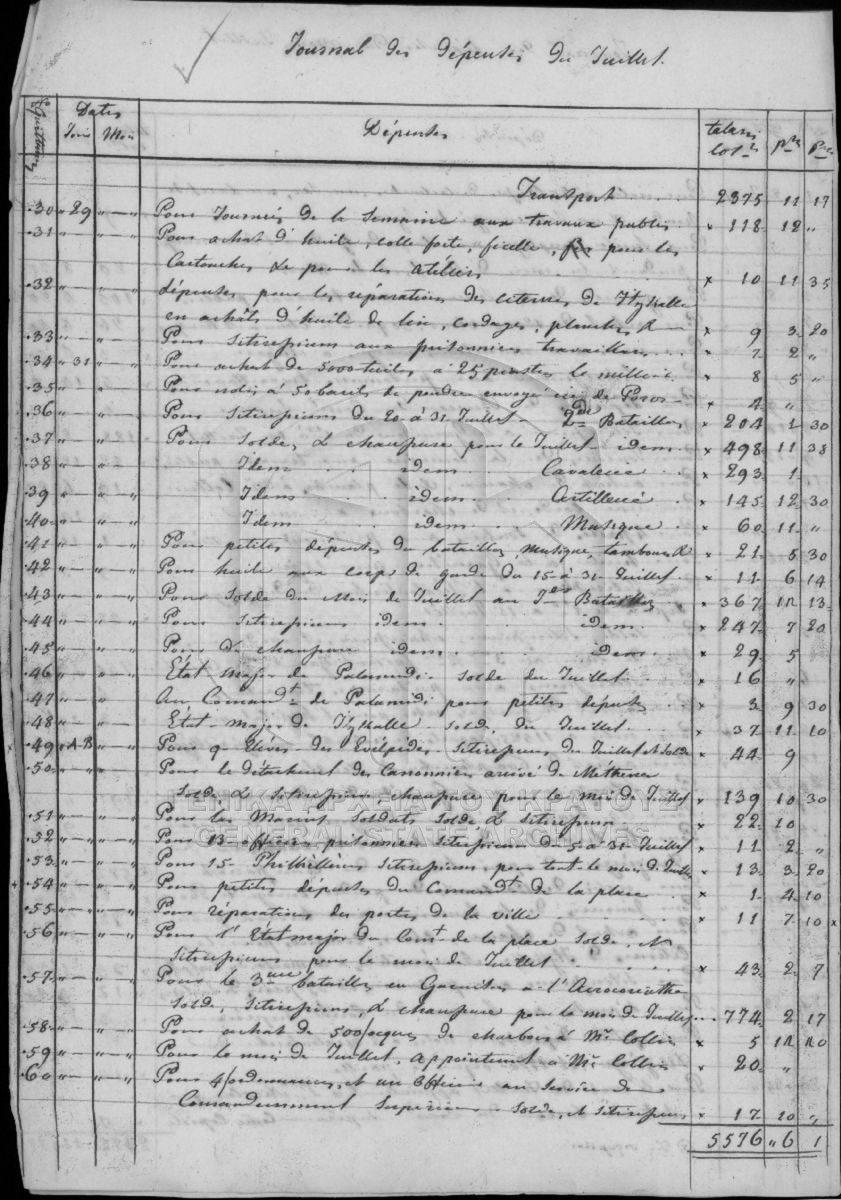 Journal des dépenses du Juillet.
Dates
Jours Mois Dépenses talaris col.rs p.rs P.as
Transport 2375 11 17
.30 " 29 " — " Pour Journées de la Semaine aux travaux publis × 118 12 "
.31 " — " — " Pour achat d'huile, colle forte, ficelle, pour les
Cartouches & pour les atéliers × 10 11 35
.32 " — " — " dépenses pour les réparations des citernes de Itzkalle
en achâts d'huile de lin, cordages, planches, & × 9 3 20
.33 " — " — " Pour Sitirepiums aux prisonniers travailleurs × 7 2 "
.34 " 31 " — " Pour achat de 5000 tuiles a 25 piastres le millier × 8 5 "
.35 " — " — " Pour nolis à 50 barils de poudre envoyé ici de Poros × 4 "
.36 " — " — " Pour Sitirepiums du 20 à 31 Juillet - 2de Bataillon × 204 1 30
.37 " — " — " Pour Soldes & chaussure pour le Juillet idem × 498 11 38
.38 " — " — " Idem idem Cavalerie × 293 1
.39 " — " — " Idem idem Artillerie × 145 12 30
.40 " — " — " Idem idem Musique × 60 11 "
.41 " — " — " Pour petites dépenses du bataillon, musique, tambours & × 21 5 30
.42 " — " — " Pour huile aux corps de garde du 15 à 31 Juillet × 11 6 14
.43 " — " — " Pour Solde du Mois de Juillet au Bataillon × 367 12 13
.44 " — " — " Pour Sitirepiums idem idem × 247 7 20
.45 " — " — " Pour de chaussure idem idem × 29 5
.46 " — " — " Etat major de Palamidi Solde du Juillet × 16 "
.47 " — " — " Au Comandt de Palamidi pour petites dépenses × 3 9 30
.48 " — " — " Etat-Major de Itzkalle Solde du Juillet × 37 11 10
.49 " A-B " — " Pour 9 Elèves des Evelpides Sitirepiums du Juillet et Solde × 44 9
.50 " — " " Pour le détachement des Canonniers arrivé de Méthènes
Solde & Sitirepiums, chaussure pour le mois de Juillet × 139 10 30
.51 " — " — " Pour les Marins Soldats Solde & Sitirepiums × 22 10
.52 " — " — " Pour 13 officiers prisonniers Sitirepiums du 5 à 31 Juillet × 11 2 "
.53 " — " — " Pour 15 Philhellènes Sitirepiums pour tout le mois de Juillet × 13 3 20
.54 " — " — " Pour petites dépenses du Comandt de la place × 1 4 10
.55 " — " — " Pour réparations des portes de la ville × 11 7 10 ×
.56 " — " — " Pour l'Etat major du Comt de la place Solde, et
Sitirepiums pour le mois de Juillet × 43 2 7
.57 " — " — " Pour le 3me bataillon en Garnison a l'Acrocorinthe
Solde, Sitirepiums, & chaussure pour le mois de Juillet 774 2 17
.58 " — " — " Pour achat de 500 ocques de charbons à Mr Collin × 5 12 20
.59 " — " — " Pour le mois de Juillet, appointement a Mr Collin × 20 "
.60 " — " — " Pour 4 ordonnances, et un Officier au Service de
Comandemment Superieur Solde, et Sitirepiums × 17 10 "
5576 " 6 1
ΓΕΝΙΚΑ ΑΡΧΕΙΑ ΤΟΥ ΚΡΑΤΟΥΣ
GENERAL STATE ARCHIVES